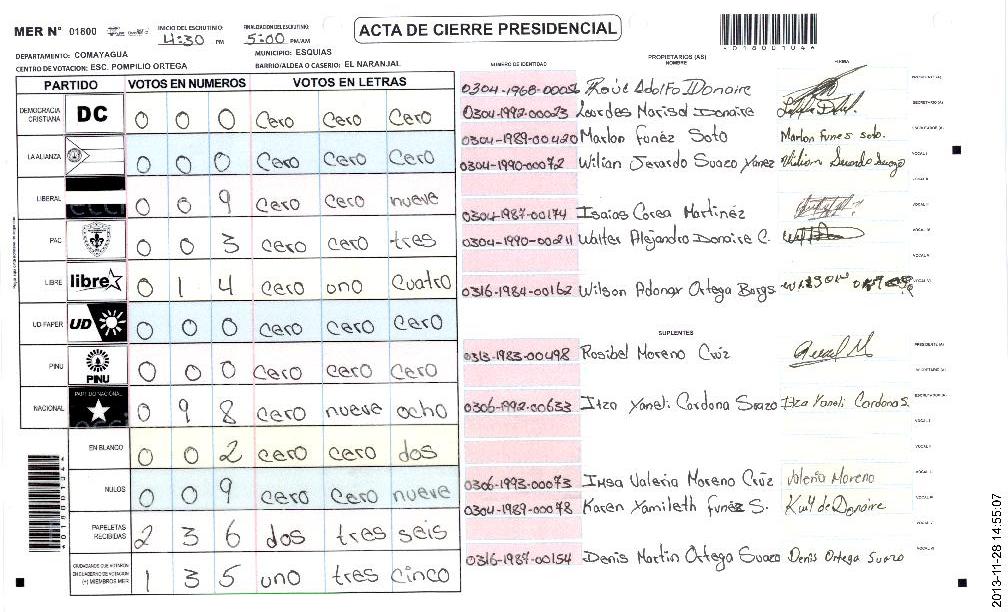 MER N° 01800 INICIO DEL ESCRUTINIO: 4:30 PM FINALIZACION DEL ESCRUTINIO: 5:00 PM/AM
ACTA DE CIERRE PRESIDENCIAL
DEPARTAMENTO: COMAYAGUA MUNICIPIO: ESQUIAS
CENTRO DE VOTACION: ESC. POMPILIO ORTEGA BARRIO/ALDEA O CASERIO: EL NARANJAL
PARTIDO VOTOS EN NUMEROS VOTOS EN LETRAS
DEMOCRACIA CRISTIANA DC 0 0 0 Cero Cero Cero
LA ALIANZA 0 0 0 Cero Cero Cero
LIBERAL 0 0 9 Cero Cero nueve
PAC 0 0 3 Cero Cero tres
LIBRE libre 0 1 4 Cero uno Cuatro
UD FAPER UD 0 0 0 Cero Cero Cero
PINU PINU 0 0 0 Cero Cero Cero
NACIONAL PARTIDO NACIONAL 0 9 8 Cero nueve ocho
EN BLANCO 0 0 2 Cero Cero dos
NULOS 0 0 9 Cero Cero nueve
PAPELETAS RECIBIDAS 2 3 6 dos tres seis
CIUDADANOS QUE VOTARON EN CUADERNO DE VOTACION (+) MIEMBROS MER 1 3 5 uno tres cinco
NUMERO DE IDENTIDAD PROPIETARIOS (AS) NOMBRE FIRMA
Raúl Adolfo Donaire
0304-1992-00023 Lourdes Marisol Donaire
0304-1989-00420 Marlon Funéz Soto Marlon Funes soto.
0304-1990-00072 Wilian Jerardo Suazo Yanez
0304-1987-00174 Isaias Corea Martinéz
0304-1990-00211 Walter Alejandro Donaire C.
0316-1984-00162 Wilson Adonay Ortega Borgs
SUPLENTES
0313-1983-00498 Rosibel Moreno Cruz
0306-1992-00633 Itza Yaneli Cardona Suazo Itza Yaneli Cardona S.
0306-1993-00073 Imsa Valeria Moreno Crúz Valeria Moreno
0304-1989-00078 Karen Yamileth Funéz S.
0316-1987-00154 Denis Martin Ortega Suazo Denis Ortega Suazo
2013-11-28 14:55:07